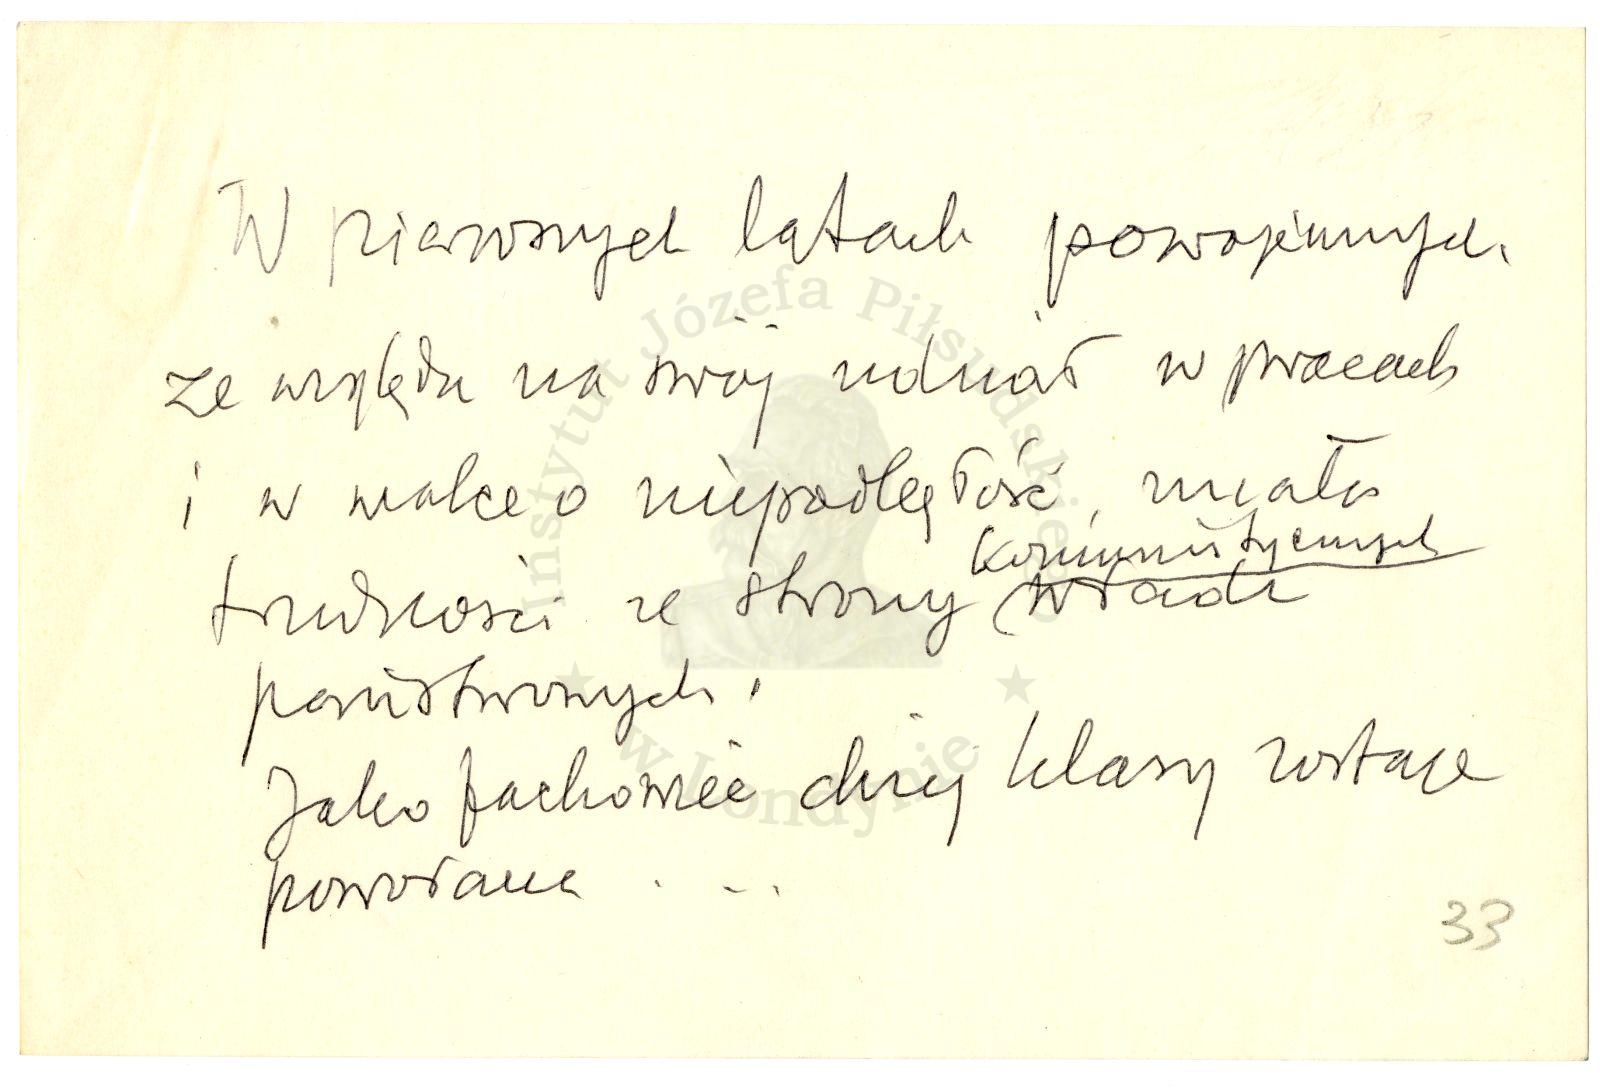 W pierwszych latach powojennych
ze względu na swój udział w pracach
i w walce o niepodległość, miała
komunistycznych
trudności ze strony władz
państwowych.
Jako fachowiec dużej klasy zostaje
powołana . . .
33
Instytut Józefa Piłsudskiego
w Londynie